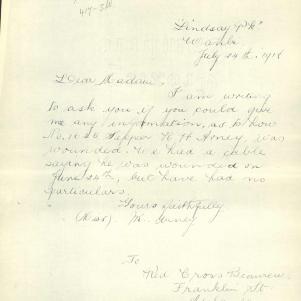 Lindsay Pk
July 24th, 1918
Dear Madam,
I am writing
to ask you if you could give
me any information, as to how
No. 1026 Sapper H. H. Honey, was
wounded. We had a cable
saying he was wounded on
June 26th, but have had no
particulars.
Yours faithfully
(Mrs) M. Honey
To
Red Cross Bureau
Franklin St.